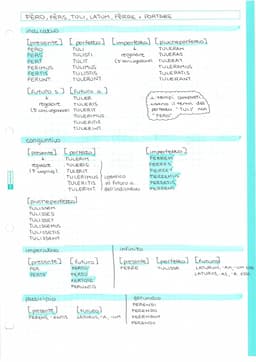 FĔRO, FĔRS, TULI, LATUM, FĔRRE = PORTARE
indicativo
[presente] [perfetto] [imperfetto] [piuccheperfetto]
FERO TULI TULERAM
FERS TULISTI regolare TULERAS
FERT TULIT (3 coniugazione) TULERAT
FERIMUS TULIMUS TULERAMUS
FERTIS TULISTIS TULERATIS
FERUNT TULERUNT TULERANT
[futuro s.] [futuro a.]
TULERO
regolare TULERIS
(3 coniugazione) TULERIT
TULERIMUS
TULERITIS
TULERINT
i tempi composti
usano il tema del
perfetto "TULI" non
"FERO"
congiuntivo
[presente] [perfetto] [imperfetto]
TULERIM FERREM
regolare TULERIS FERRES
(3 coniug.) TULERIT FERRET
TULERIMUS FERREMUS
TULERITIS FERRETIS
TULERINT FERRENT
identico
al futuro a.
dell'indicativo
[piuccheperfetto]
TULISSEM
TULISSES
TULISSET
TULISSEMUS
TULISSETIS
TULISSENT
imperativo infinito
[presente] [futuro] [presente] [perfetto] [futuro]
FER FERTO FERRE TULISSE LATURUM, -AM, -UM ESSE
FERTE FERTO LATUROS, -AS, -A ESSE
FERTOTE
FERUNTO
participio gerundio
[presente] [futuro] FERENDI
FERENS, -ENTIS LATURUS, -A, -UM FERENDO
FERENDUM
FERENDO